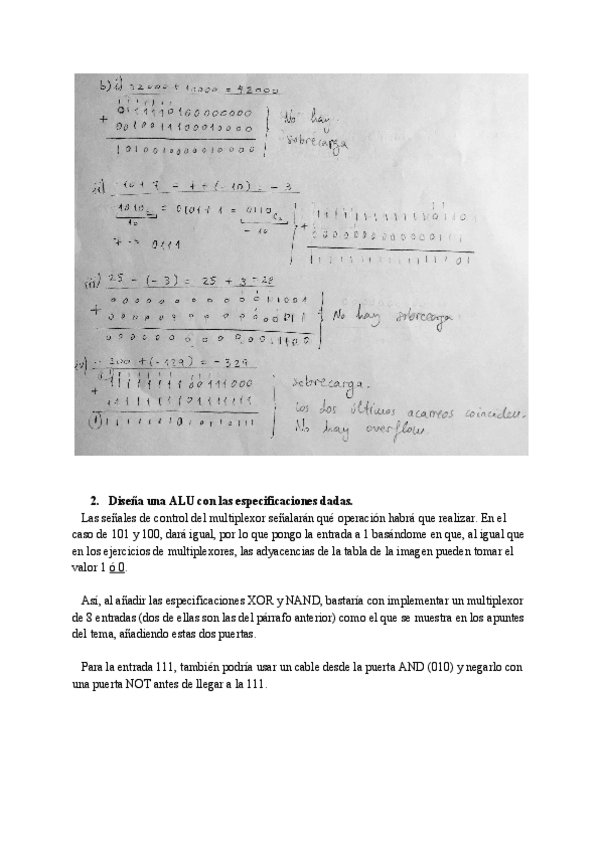 b) i) 32000 + 10000 = 42000
0111110100000000
+
0010011100010000
1010010000010000
No hay
sobrecarga
= - 3
0111
+
1111111111110110
0000000000000111
1111111111111101
iii) 25 - (-3) = 25 + 3 = 28
+
No hay sobrecarga.
iv) - 200 + (-129) = - 329
+
sobrecarga.
Los dos últimos acarreos coinciden.
No hay overflow.
2. Diseña una ALU con las especificaciones dadas.
Las señales de control del multiplexor señalarán qué operación habrá que realizar. En el
caso de 101 y 100, dará igual, por lo que pongo la entrada a 1 basándome en que, al igual que
en los ejercicios de multiplexores, las adyacencias de la tabla de la imagen pueden tomar el
valor 1 ó 0.
Así, al añadir las especificaciones XOR y NAND, bastaría con implementar un multiplexor
de 8 entradas (dos de ellas son las del párrafo anterior) como el que se muestra en los apuntes
del tema, añadiendo estas dos puertas.
Para la entrada 111, también podría usar un cable desde la puerta AND (010) y negarlo con
una puerta NOT antes de llegar a la 111.